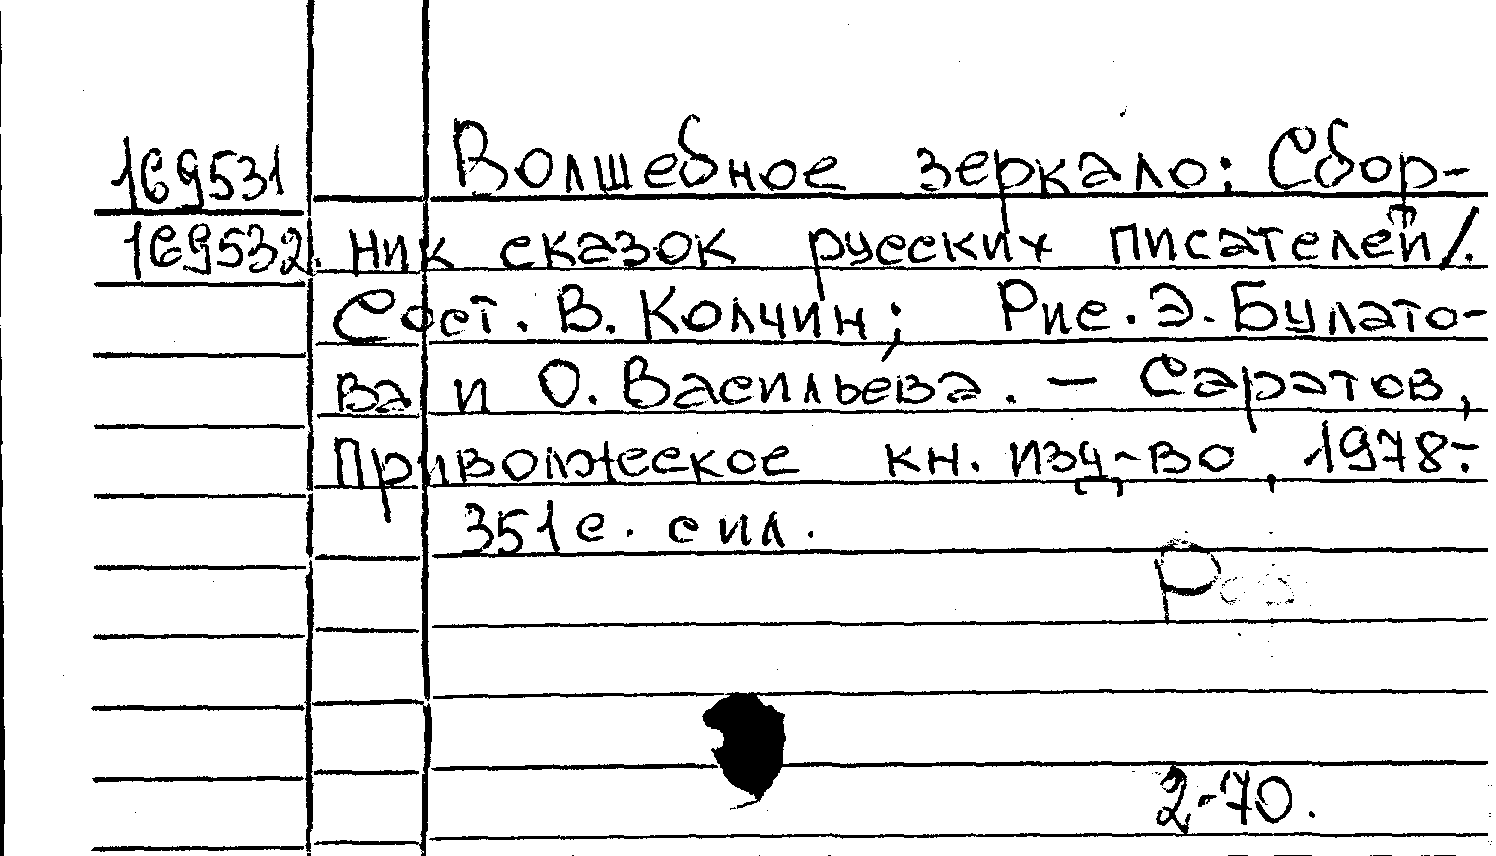 169531 Волшебное зеркало: Сбор-
169532. ник сказок русских писателей/.
Сост. В. Колчин; Рис. Э. Булато-
ва и О. Васильева. – Саратов,
Приволжское кн. изд-во, 1978.-
351с. с ил.
2-70.